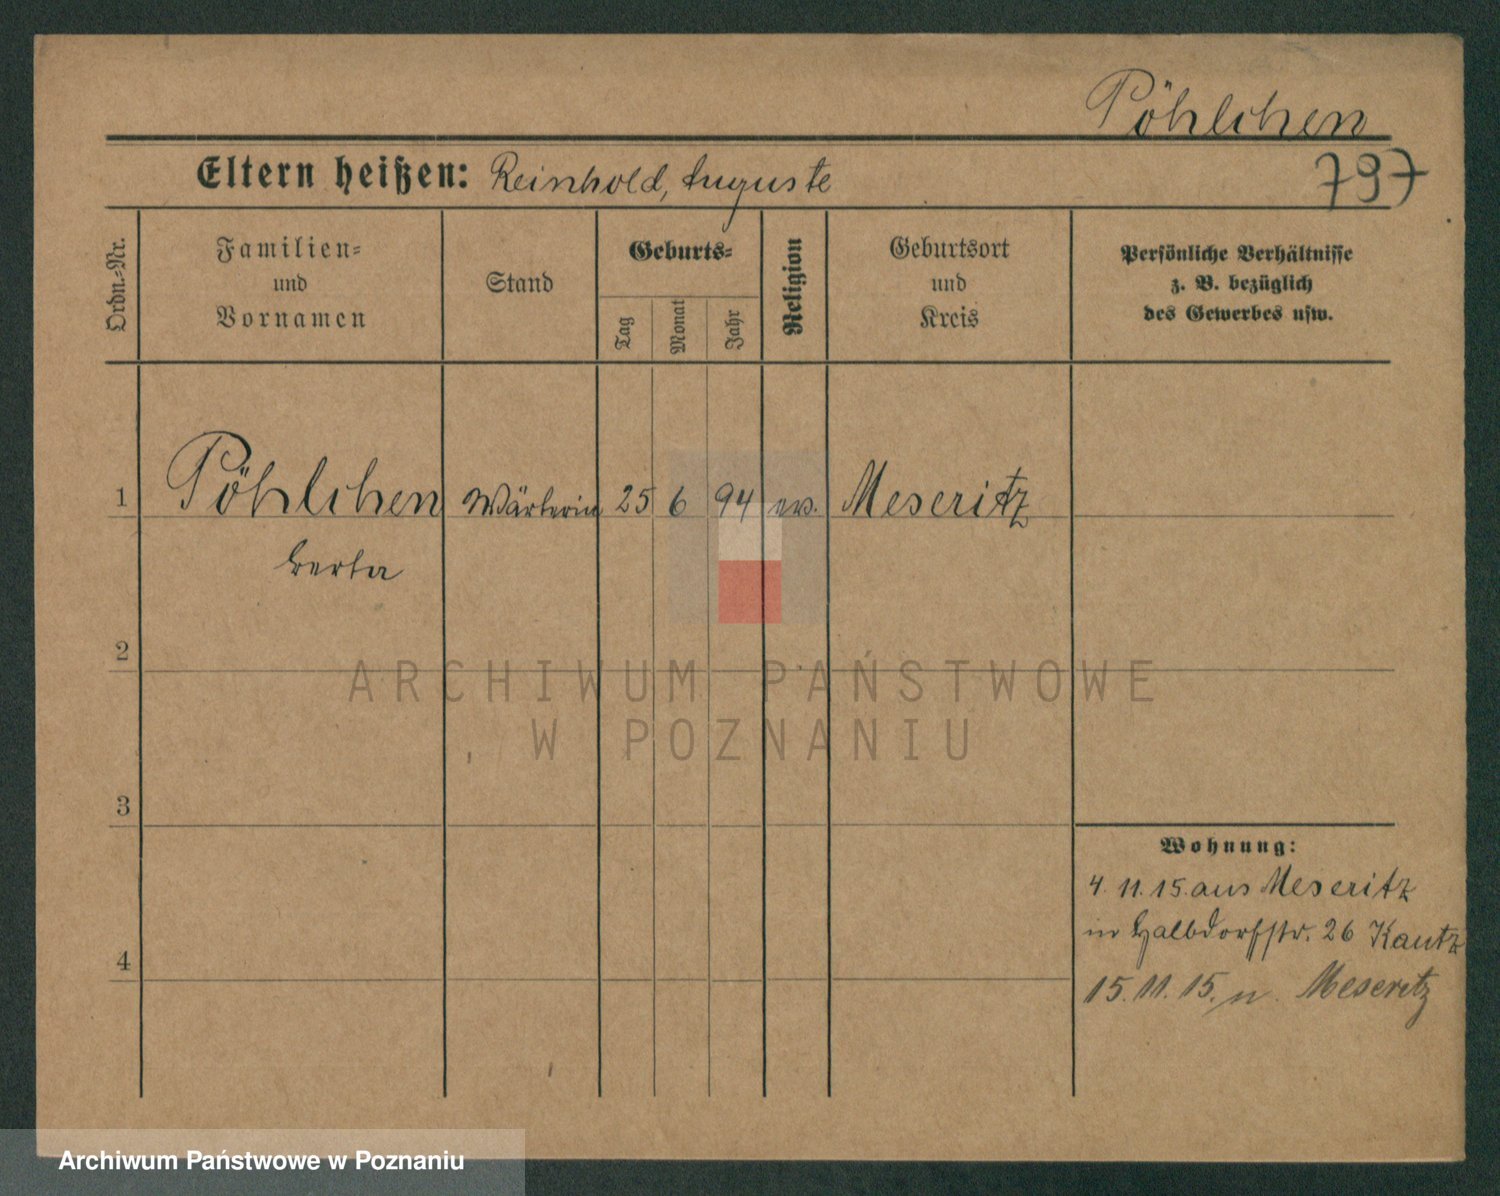 Pöhlchen
Eltern heißen: Reinhold, Auguste
797
Ordn.-Nr.
Familien-
und
Vornamen
Stand
Geburts-
Tag
Monat
Jahr
Religion
Geburtsort
und
Kreis
Persönliche Verhältnisse
z. B. bezüglich
des Gewerbes usw.
1 Pöhlchen Wärterin 25 6 94 ev. Meseritz
Berta
2
ARCHIWUM PAŃSTWOWE
W POZNANIU
3
Wohnung:
4. 11. 15. aus Meseritz
in Halbdorfstr. 26 Kautz
4
15. 11. 15. n. Meseritz
Archiwum Państwowe w Poznaniu